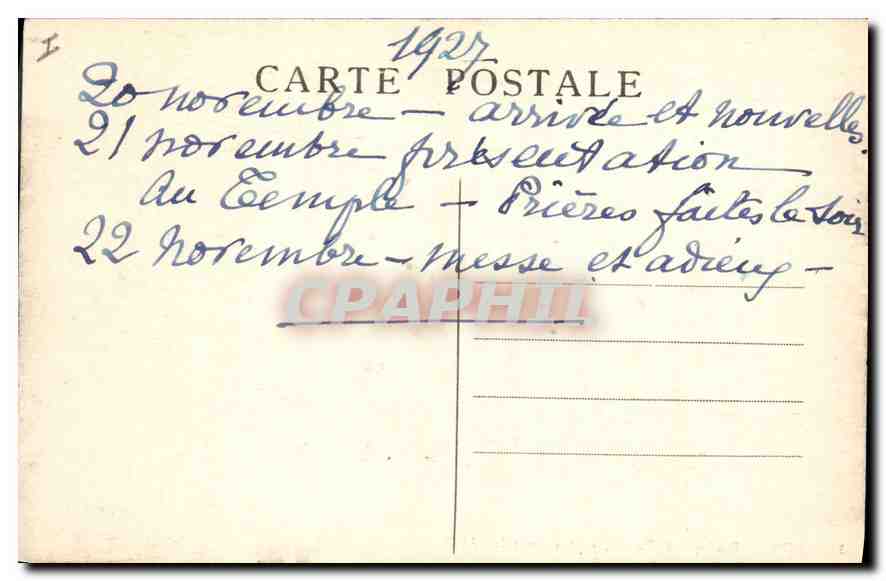 I
1927
CARTE POSTALE
20 novembre - arrivée et nouvelles.
21 novembre présentation
au Temple - Prières faites le soir
22 novembre - messe et adieux -
CPAPHIL